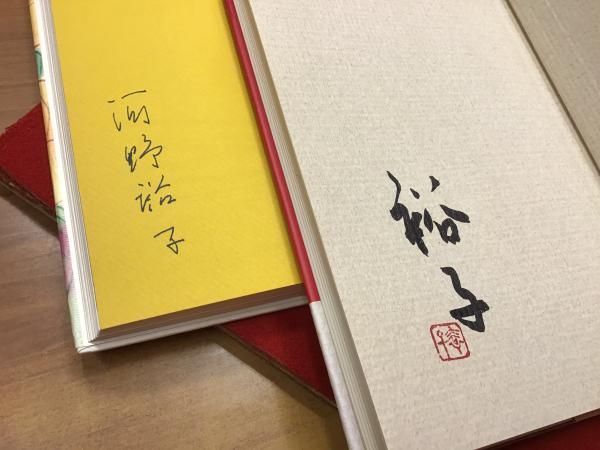 河野裕子
裕子